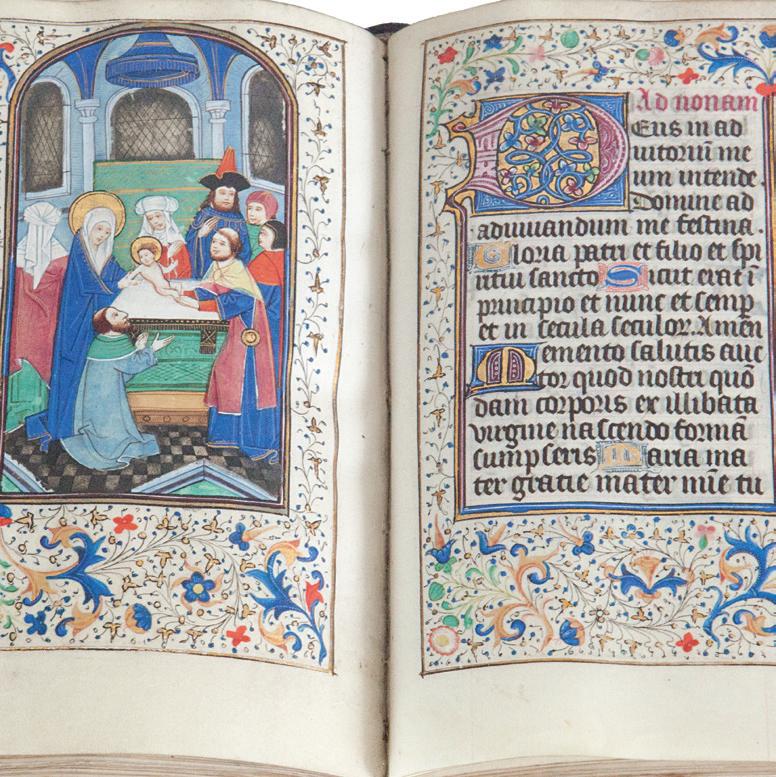 Ad nonam
Deus in ad
iutoriū me
um intende.
Domine ad
adiuuandum me festina.
Gloria patri et filio et spi
ritui sancto Sicut erat ī
principio et nunc et semp
et in secula seculoꝝ. Amen
Memento salutis auc
tor quod nostri quō
dam corporis ex illibata
virgine nascendo formā
sumpseris Maria ma
ter gratie mater mīe tu